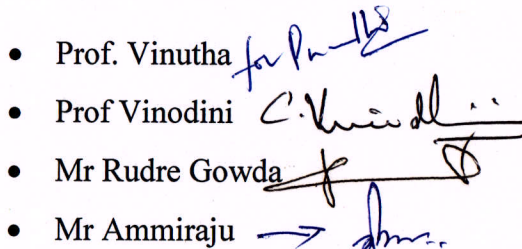 • Prof. Vinutha for
• Prof Vinodini C. Vinodh
• Mr Rudre Gowda
• Mr Ammiraju →